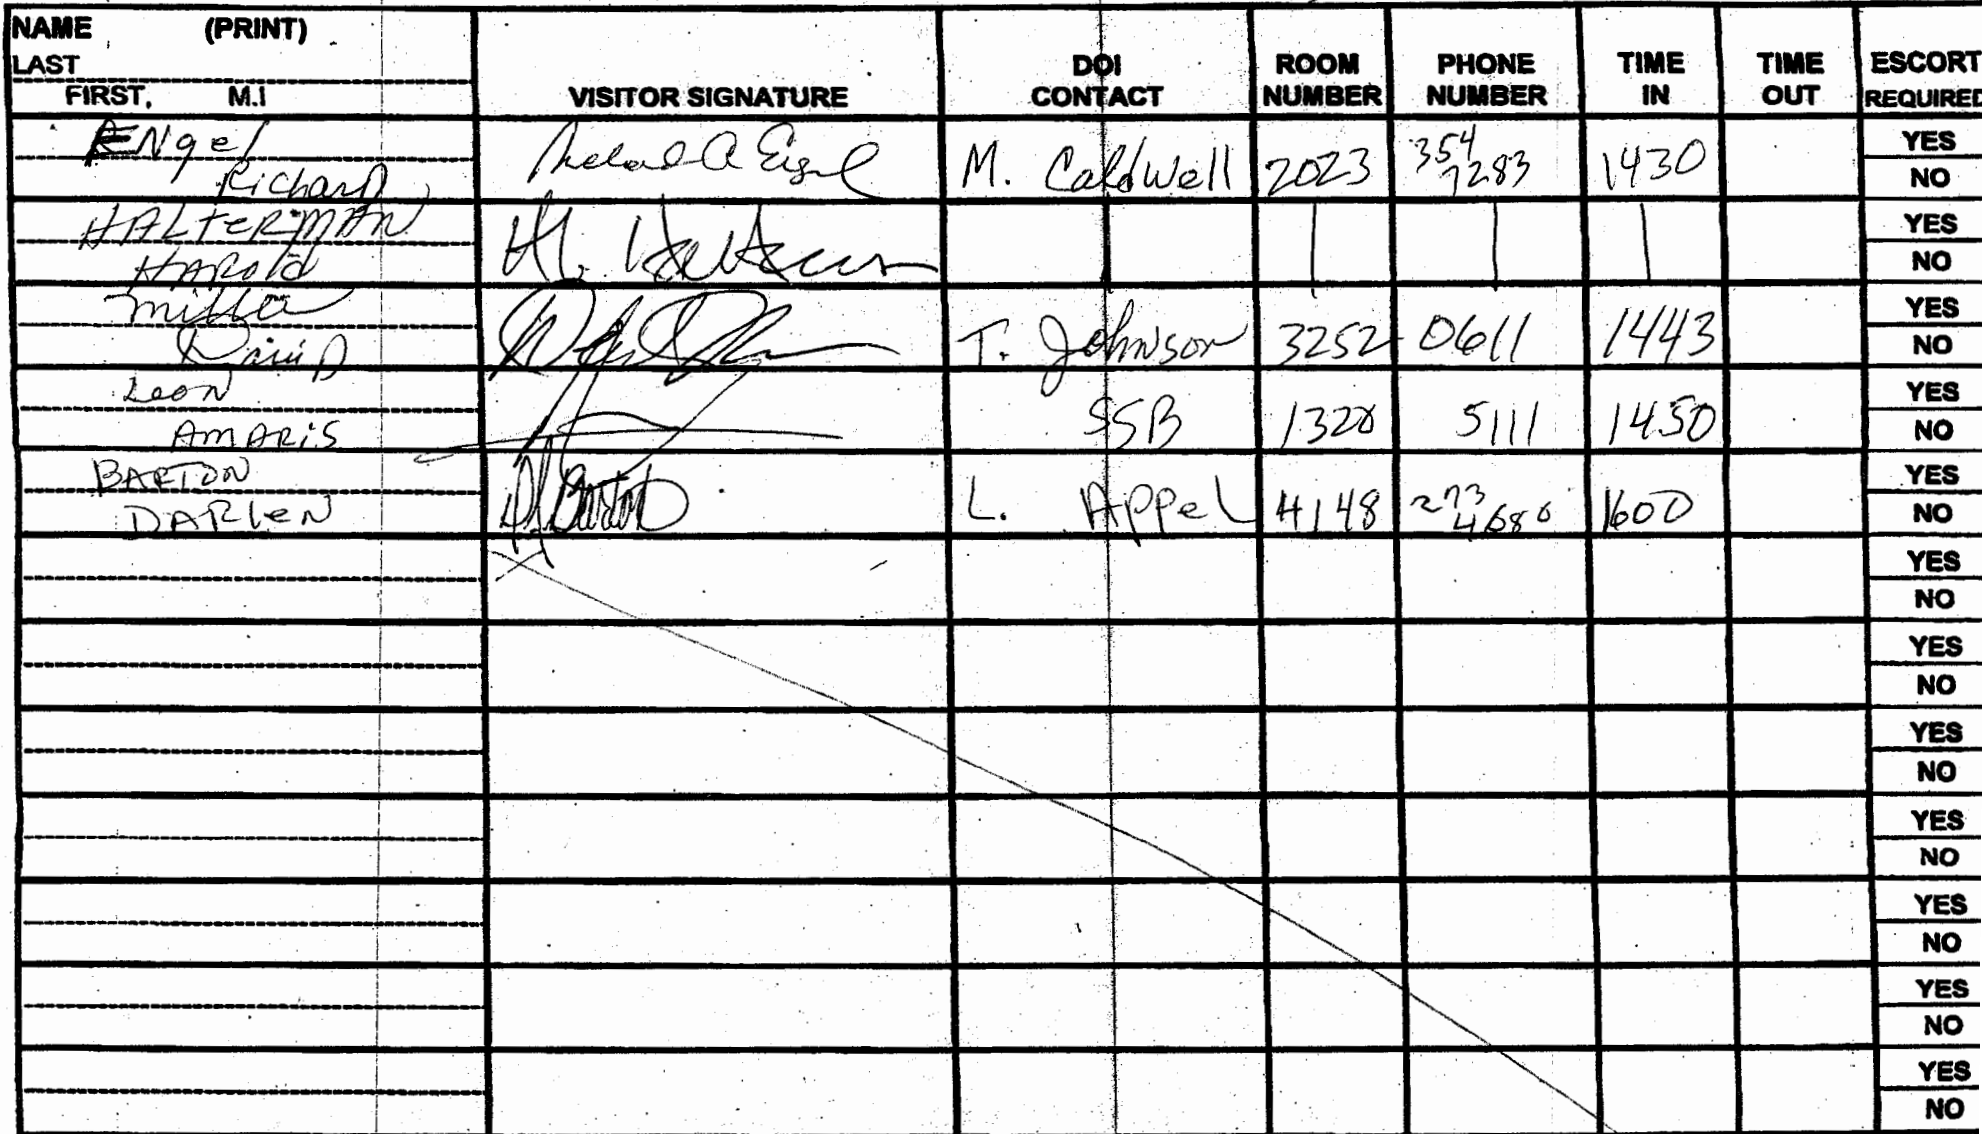 NAME (PRINT)
LAST
FIRST, M.I
VISITOR SIGNATURE
DOI
CONTACT
ROOM
NUMBER
PHONE
NUMBER
TIME
IN
TIME
OUT
ESCORT
REQUIRED
ENgel
Richard
M. Caldwell 2023 354 7283 1430
YES
NO
HALTERMAN
HAROld
H. Halterman
YES
NO
Miller
David
T. Johnson 3252 0611 1443
YES
NO
Leon
AMARiS
SSB 1320 5111 1450
YES
NO
BARTON
DARleN
D Barton
L. Appel 4148 273 4680 1600
YES
NO
YES
NO
YES
NO
YES
NO
YES
NO
YES
NO
YES
NO
YES
NO